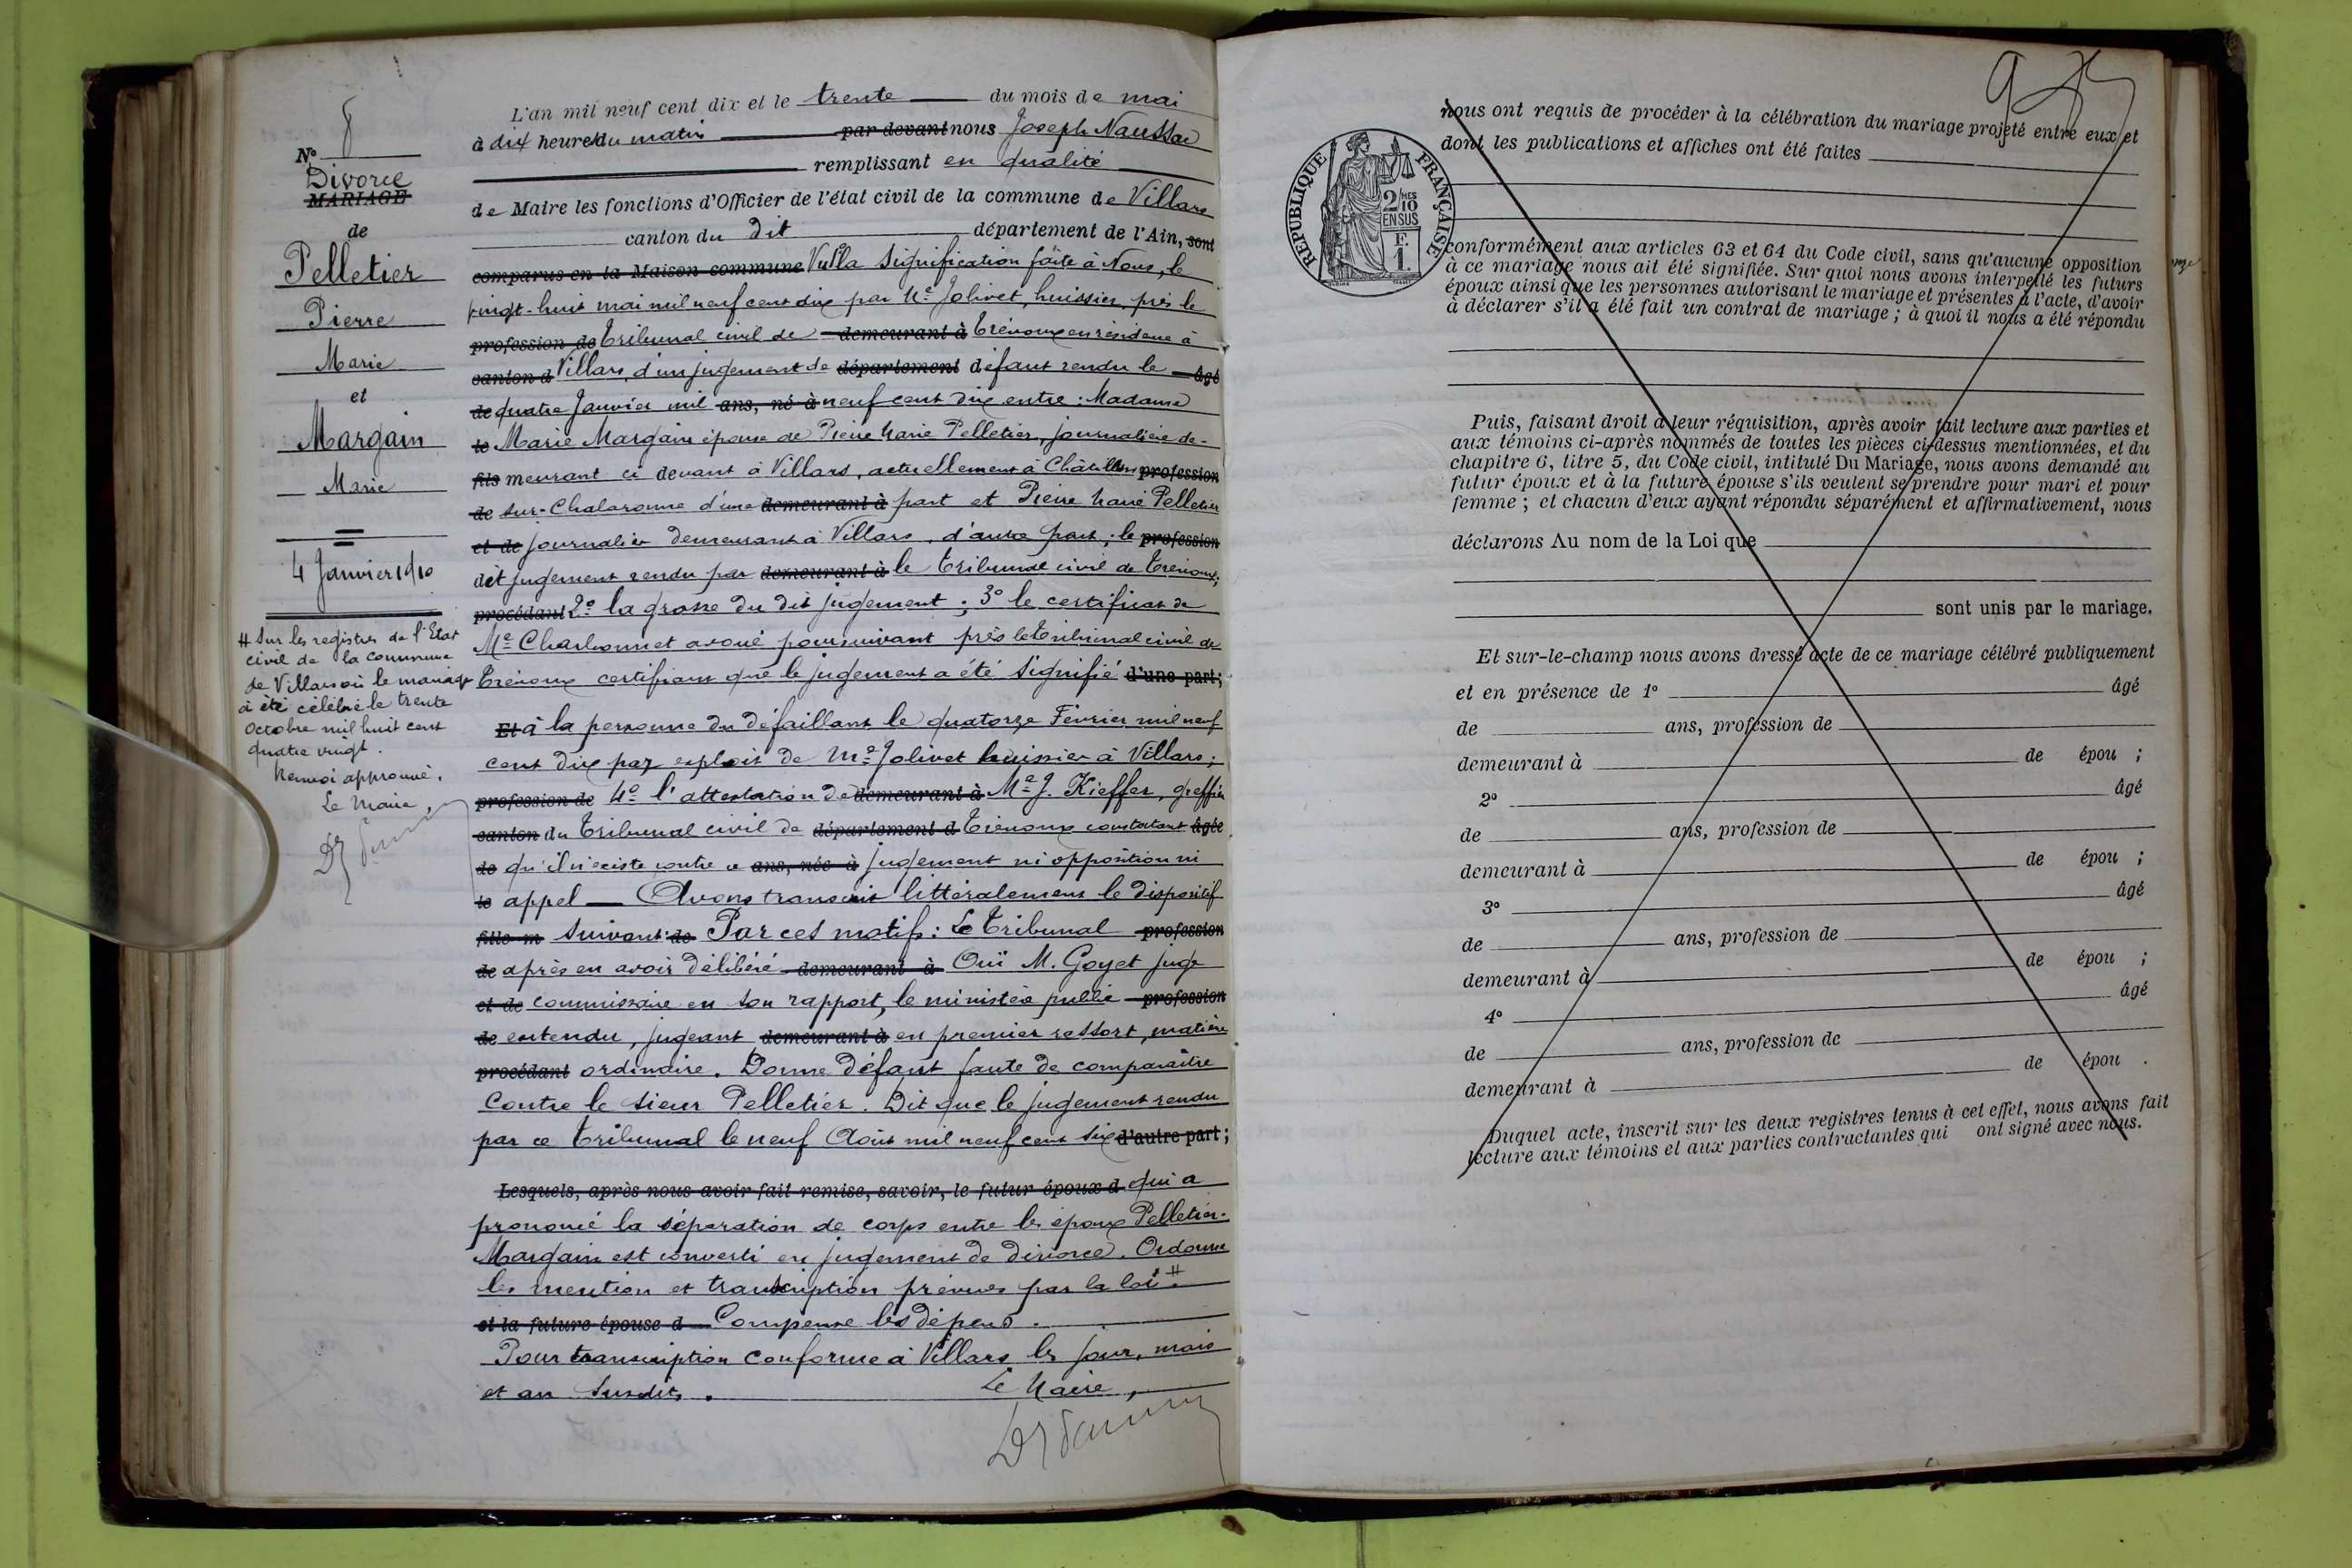 N° 8
Divorce
MARIAGE
de
Pelletier
Pierre
Marie
et
Margain
Marie
4 Janvier 1910
# Sur les registres de l'Etat
civil de la commune
de Villars où le mariage
a été célébré le trente
Octobre mil huit cent
quatre vingt.
Renvoi approuvé.
Le Maire,
L'an mil neuf cent dix et le trente du mois de mai
à dix heures du matin par devant nous Joseph Naussac
remplissant en qualité
de Maire les fonctions d'Officier de l'état civil de la commune de Villars
canton du dit département de l'Ain, sont
comparus en la Maison commune Vu la signification faite à Nous, le
vingt-huit mai mil neuf cent dix par Me Jolivet, huissier, près le
profession de Tribunal civil de demeurant à Trévoux en résidence à
canton d Villars, d'un jugement de département défaut rendu le âgé
de quatre Janvier mil ans, né à neuf cent dix entre : Madame
le Marie Margain épouse de Pierre Marie Pelletier, journalière de-
fils meurant ci devant à Villars, actuellement à Châtillon profession
de sur-Chalaronne d'une demeurant à part et Pierre Marie Pelletier
et de journalier demeurant à Villars, d'autre part ; le profession
dit jugement rendu par demeurant à le Tribunal civil de Trévoux;
procédant 2° la grosse du dit jugement ; 3° le certificat de
Me Charbonnet avoué poursuivant près le Tribunal civil de
Trévoux certifiant que le jugement a été signifié d'une part;
Et à la personne du défaillant le quatorze Février mil neuf
cent dix par exploit de Me Jolivet huissier à Villars;
profession de 4° l'attestation de demeurant à Me J. Kieffer, greffier
canton du Tribunal civil de département d Trévoux constatant âgée
de qu'il n'existe contre ce ans, née à jugement ni opposition ni
le appel — Avons transcrit littéralement le dispositif
fille m suivant: de Par ces motifs : Le Tribunal profession
de après en avoir délibéré demeurant à Ouï M. Goyet juge
et de commissaire en son rapport, le ministère public profession
de entendu, jugeant demeurant à en premier ressort, matière
procédant ordinaire. Donne défaut faute de comparaître
Contre le sieur Pelletier. Dit que le jugement rendu
par ce Tribunal le neuf Août mil neuf cent six d'autre part;
Lesquels, après nous avoir fait remise, savoir, le futur époux d qui a
prononcé la séparation de corps entre les époux Pelletier-
Margain est converti en jugement de divorce. Ordonne
les mention et transcription prévues par la loi #.
et la future épouse d Compense les dépens.
Pour transcription conforme à Villars les jour, mois
et an susdits.
Le Maire,
9
REPUBLIQUE FRANÇAISE
2/10 MES
EN SUS
F.
1.
nous ont requis de procéder à la célébration du mariage projeté entre eux et
dont les publications et affiches ont été faites
conformément aux articles 63 et 64 du Code civil, sans qu'aucune opposition
à ce mariage nous ait été signifiée. Sur quoi nous avons interpellé les futurs
époux ainsi que les personnes autorisant le mariage et présentes à l'acte, d'avoir
à déclarer s'il a été fait un contrat de mariage ; à quoi il nous a été répondu
Puis, faisant droit à leur réquisition, après avoir fait lecture aux parties et
aux témoins ci-après nommés de toutes les pièces ci-dessus mentionnées, et du
chapitre 6, titre 5, du Code civil, intitulé Du Mariage, nous avons demandé au
futur époux et à la future épouse s'ils veulent se prendre pour mari et pour
femme ; et chacun d'eux ayant répondu séparément et affirmativement, nous
déclarons Au nom de la Loi que
sont unis par le mariage.
Et sur-le-champ nous avons dressé acte de ce mariage célébré publiquement
et en présence de 1° âgé
de ans, profession de
demeurant à de épou ;
2° âgé
de ans, profession de
demeurant à de épou ;
3° âgé
de ans, profession de
demeurant à de épou ;
4° âgé
de ans, profession de
demeurant à de épou .
Duquel acte, inscrit sur les deux registres tenus à cet effet, nous avons fait
lecture aux témoins et aux parties contractantes qui ont signé avec nous.